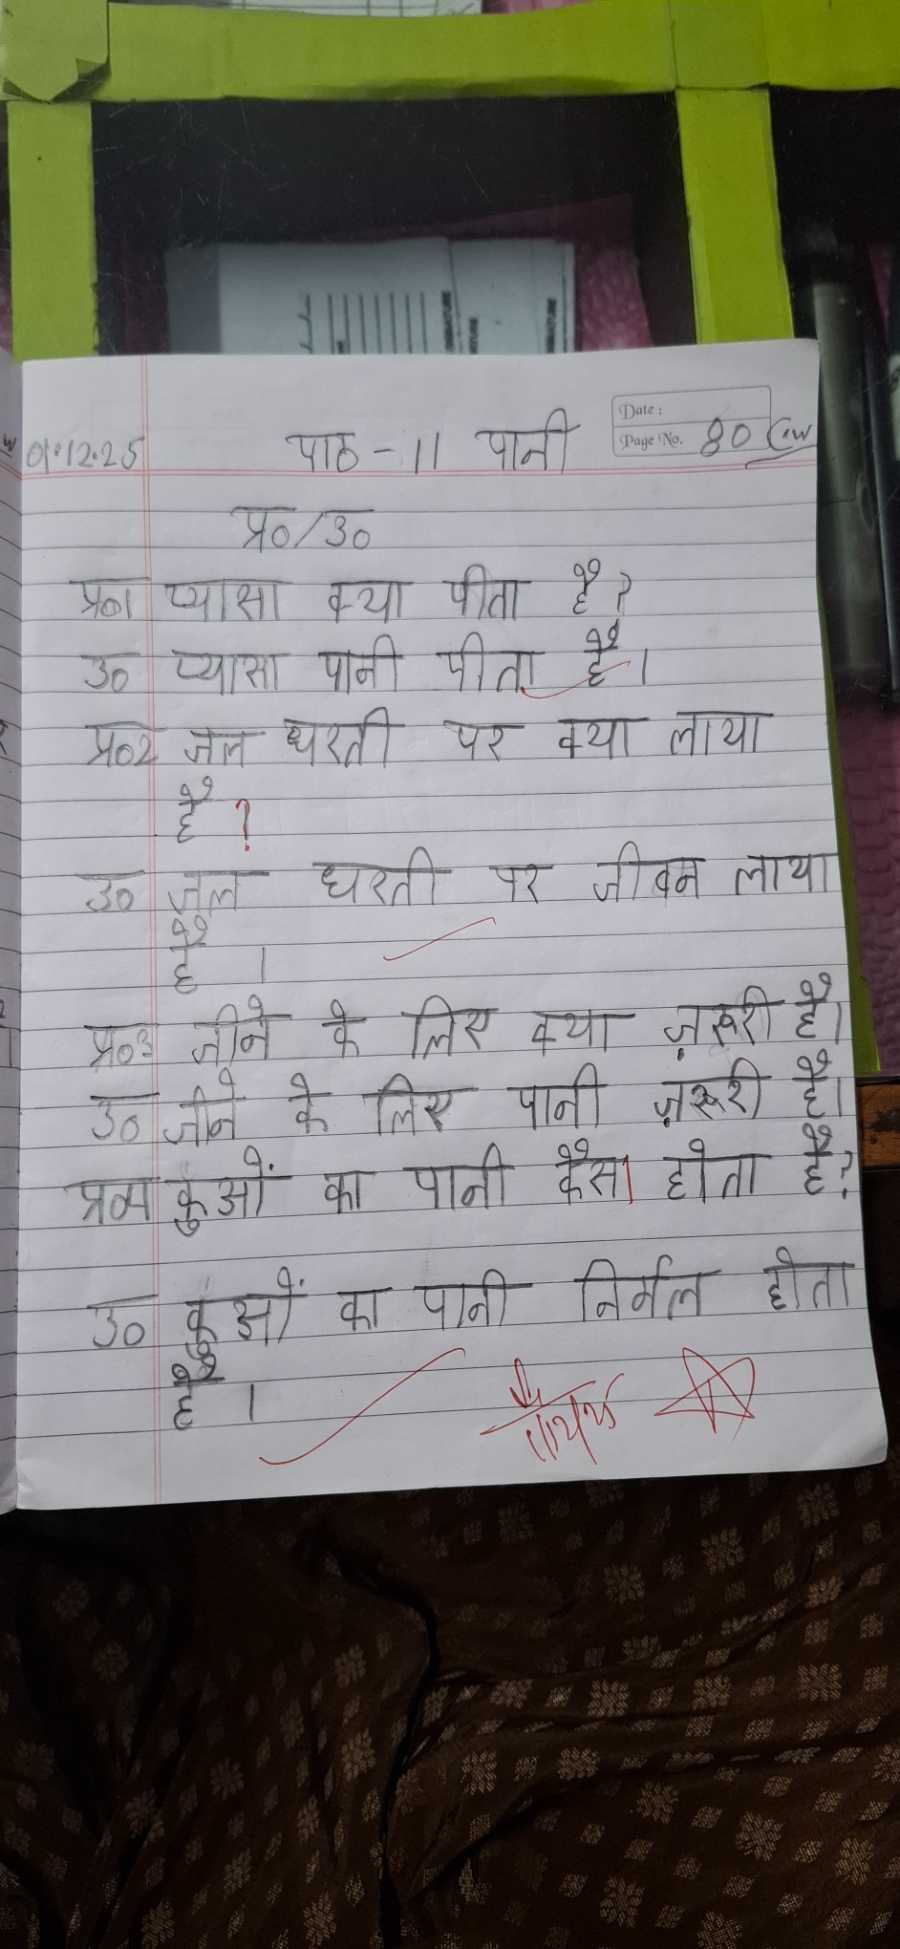 01.12.25 पाठ - 11 पानी
Date :
Page No. 80 C.W
प्र०/उ०
प्र०1 प्यासा क्या पीता है ?
उ० प्यासा पानी पीता है ।
प्र०2 जल धरती पर क्या लाया
है ?
उ० जल धरती पर जीवन लाया
है ।
प्र०3 जीने के लिए क्या ज़रूरी है।
उ० जीने के लिए पानी ज़रूरी है।
प्र०4 कुओं का पानी कैसा होता है?
उ० कुओं का पानी निर्मल होता
है ।